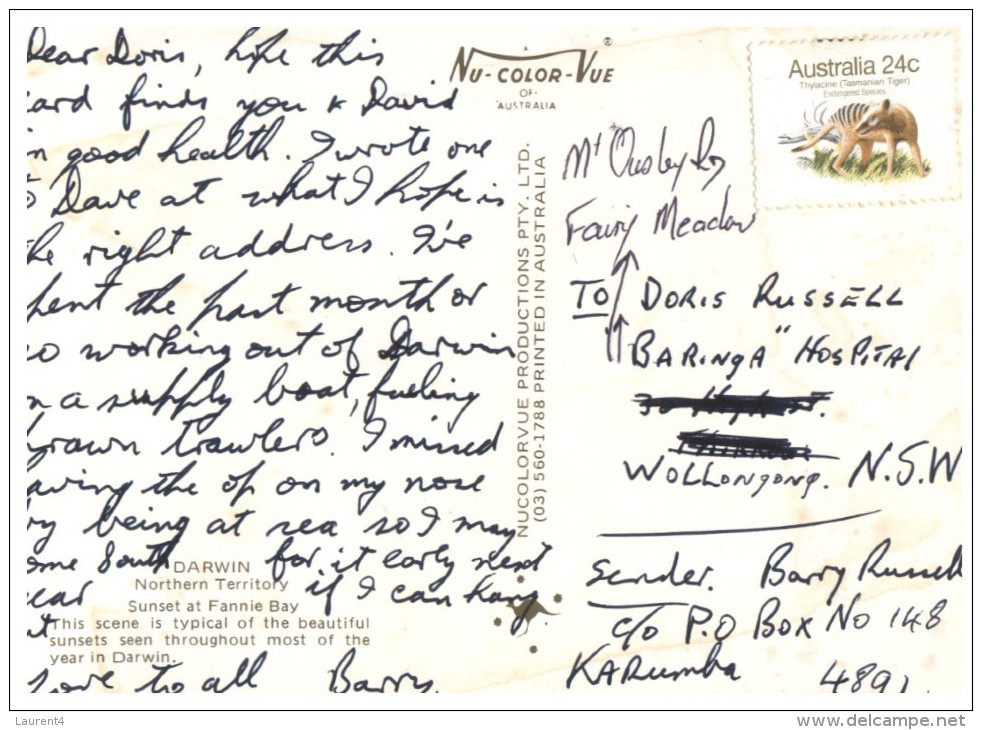 Dear Doris, hope this
ard finds you & David
n good health. I wrote one
o Dave at what I hope is
he right address. I've
pent the past month or
so working out of Darwin
n a supply boat, fueling
prawn trawlers. I missed
aving the op on my nose
by being at sea so I may
ome South for it early next
year if I can hang
t
Love to all Barry.
DARWIN
Northern Territory
Sunset at Fannie Bay
This scene is typical of the beautiful
sunsets seen throughout most of the
year in Darwin.
NU-COLOR-VUE®
OF
AUSTRALIA
NUCOLORVUE PRODUCTIONS PTY. LTD.
(03) 560-1788 PRINTED IN AUSTRALIA
Australia 24c
Thylacine (Tasmanian Tiger)
Endangered Species
Mt Ousley Rd
Fairy Meadow
TO DORIS RUSSELL
BARINGA" HOSPITAL
WOLLONGONG. N.S.W
Sender. Barry Russell
C/o P.O Box No 148
KARumba 4891.
Laurent4
www.delcampe.net